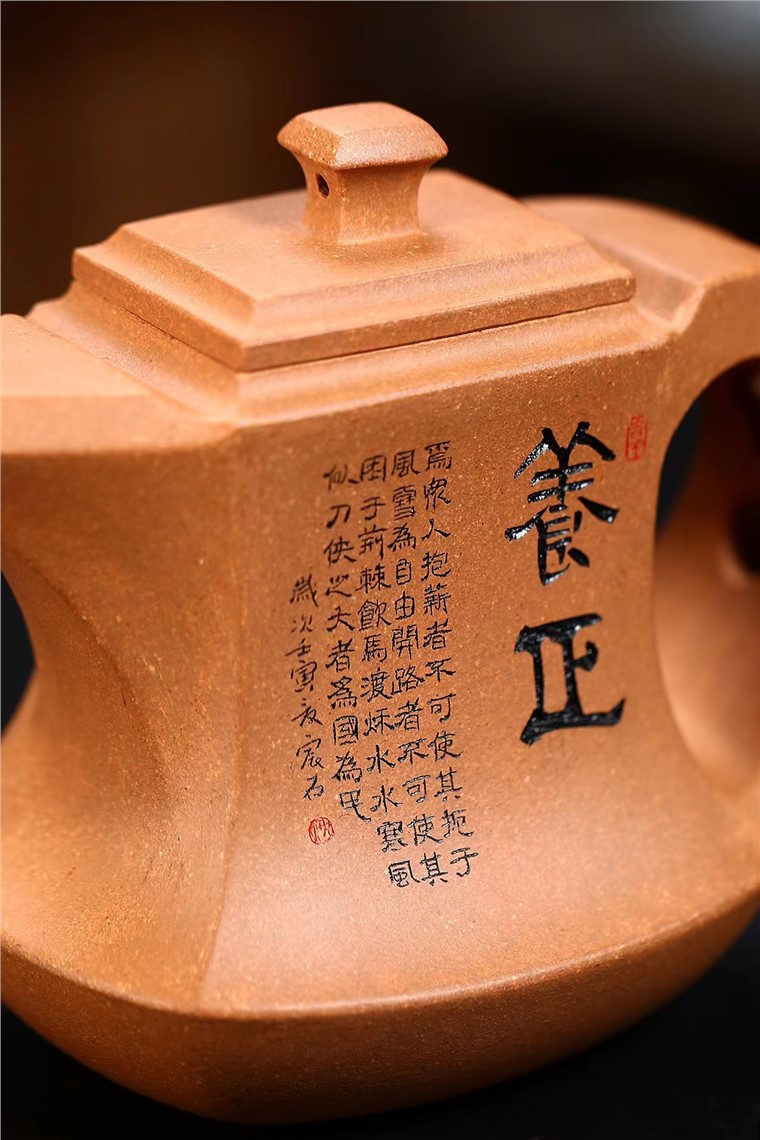 養正
為眾人抱薪者不可使其扼于
風雪為自由開路者不可使其
困于荊棘飲馬渡秌水水寒風
似刀俠之大者為國為民
歲次壬寅友宸石